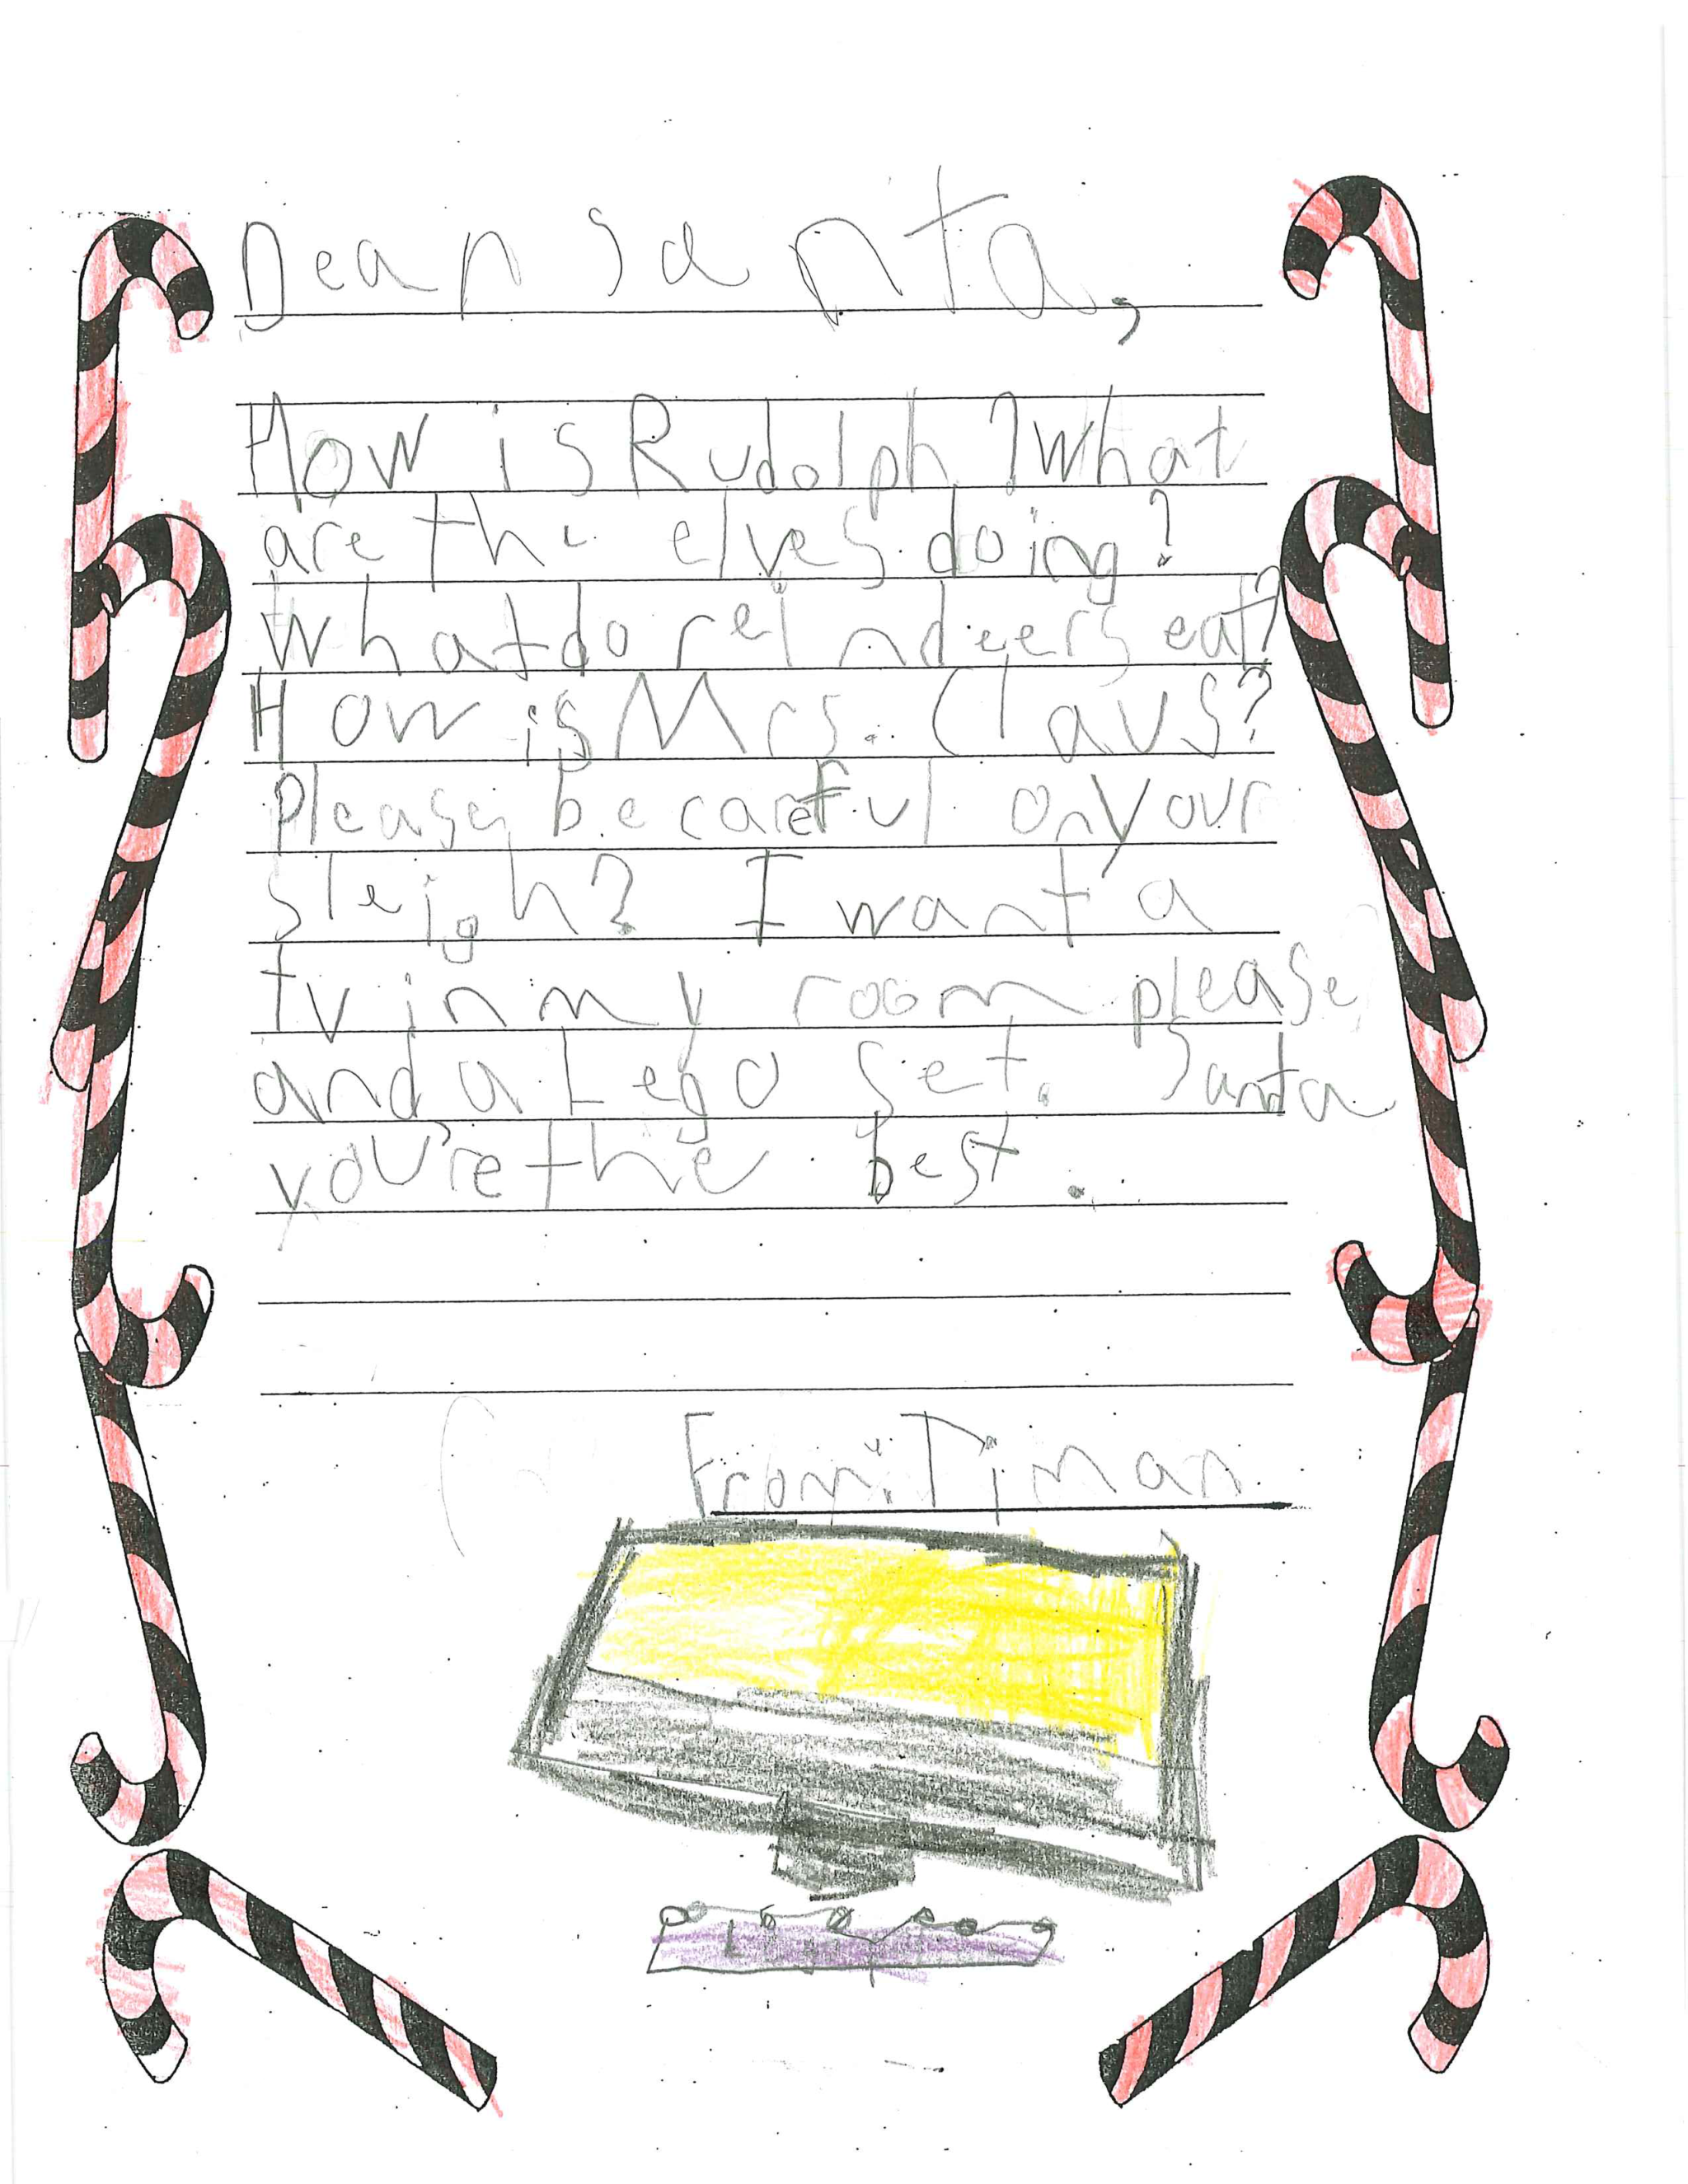 Dear Santa,
How is Rudolph? What
are the elves doing?
What do reindeers eat?
How is Mrs. Claus?
please be careful on your
sleigh? I want a
tv in my room please
and a Lego set. Santa
you're the best.
From: Tjman